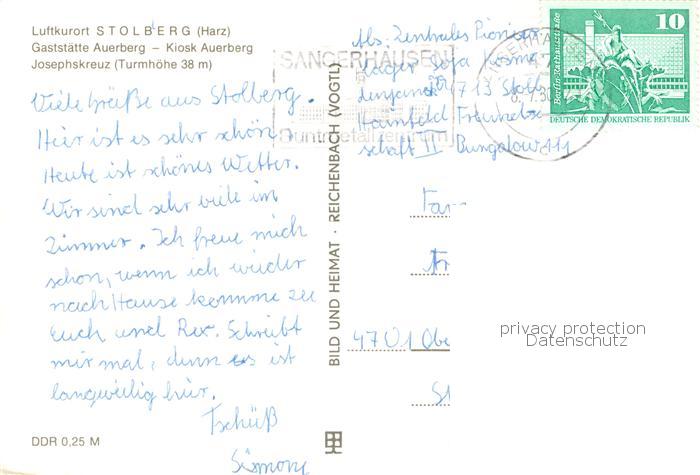 Luftkurort STOLBERG (Harz)
Gaststätte Auerberg – Kiosk Auerberg
Josephskreuz (Turmhöhe 38 m)
Viele Grüße aus Stolberg.
Hier ist es sehr schön.
Heute ist schönes Wetter.
Wir sind sehr viele im
Zimmer. Ich freue mich
schon, wenn ich wieder
nach Hause komme zu
Euch und Rex. Schreibt
mir mal, denn es ist
langweilig hier.
Tschüß
Simone
DDR 0,25 M
BILD UND HEIMAT · REICHENBACH (VOGTL)
SANGERHAUSEN
Abs. Zentrales Pionier
lager Soja Kosmo
4713 Stolb
Hainfeld Freundschaft
schaft II Bungalow 411
10
Berlin, Rathausstraße
DEUTSCHE DEMOKRATISCHE REPUBLIK
Fa
4701 Obe
St
privacy protection
Datenschutz